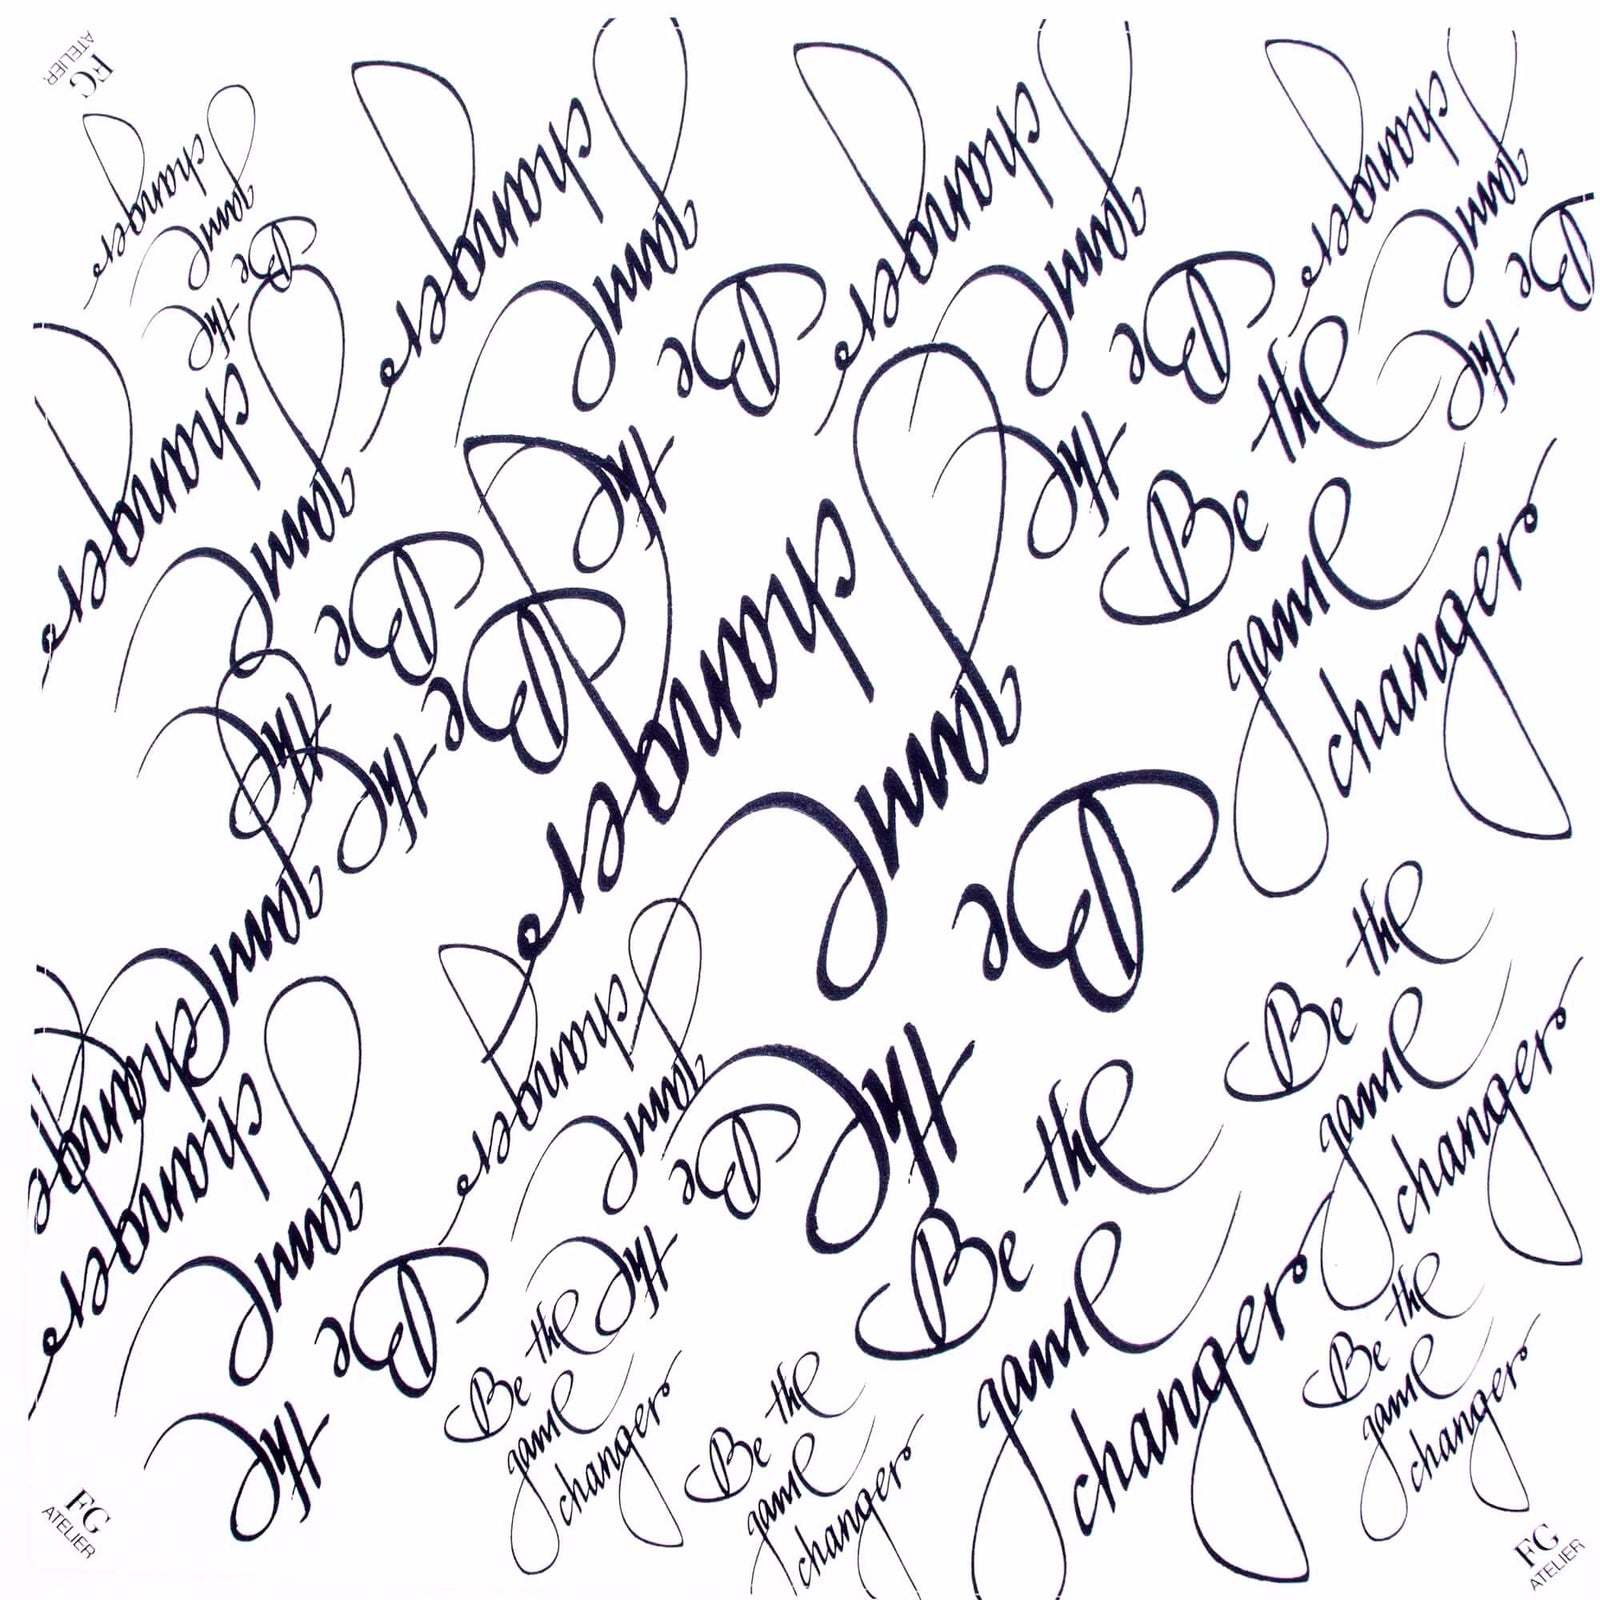 FG
ATELIER
Be the
game
changer
Be the
game
changer
Be the
game
changer
Be the
game
changer
Be the
game
changer
Be the
game
changer
Be the
game
changer
Be the
game
changer
Be the
game
changer
Be the
game
changer
Be the
game
changer
Be the
game
changer
Be the
game
changer
Be the
game
changer
Be the
game
changer
FG
ATELIER
FG
ATELIER